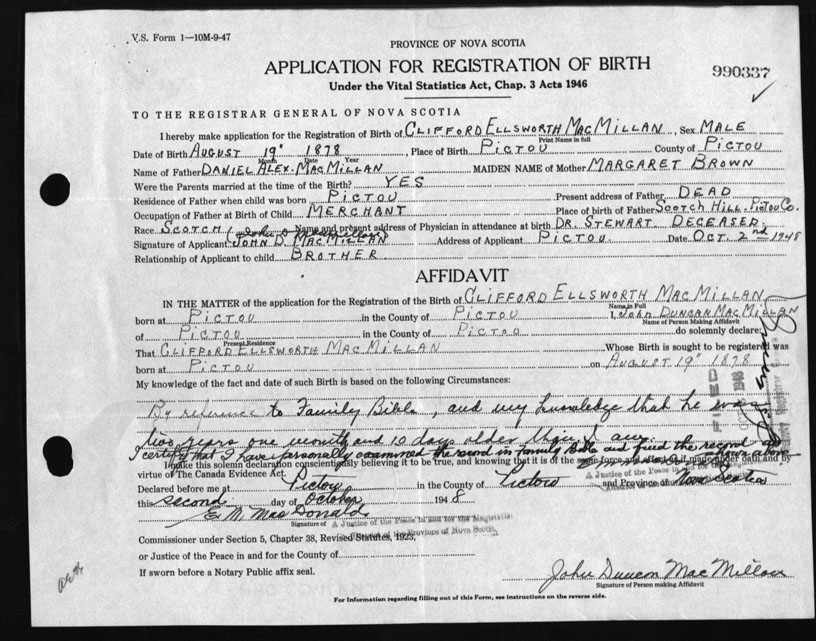 V.S. Form 1—10M-9-47
PROVINCE OF NOVA SCOTIA
APPLICATION FOR REGISTRATION OF BIRTH
990337
Under the Vital Statistics Act, Chap. 3 Acts 1946
TO THE REGISTRAR GENERAL OF NOVA SCOTIA
I hereby make application for the Registration of Birth of CLIFFORD ELLSWORTH MACMILLAN, Sex MALE
Print Name in full
Date of Birth AUGUST 19" 1878, Place of Birth PICTOU County of PICTOU
Month Date Year
Name of Father DANIEL ALEX. MACMILLAN MAIDEN NAME of Mother MARGARET BROWN
Were the Parents married at the time of the Birth? YES
Residence of Father when child was born PICTOU Present address of Father DEAD
Occupation of Father at Birth of Child MERCHANT Place of birth of Father SCOTCH HILL. PICTOU CO.
Race SCOTCH Name and present address of Physician in attendance at birth DR. STEWART DECEASED.
(John D MacMillan)
Signature of Applicant JOHN D. MACMILLAN Address of Applicant PICTOU Date OCT. 2nd 1948
Relationship of Applicant to child BROTHER
AFFIDAVIT
IN THE MATTER of the application for the Registration of the Birth of CLIFFORD ELLSWORTH MACMILLAN
Name in Full
born at PICTOU in the County of PICTOU I, JOHN DUNCAN MACMILLAN
Name of Person Making Affidavit
of PICTOU in the County of PICTOU do solemnly declare:
Present Residence
That CLIFFORD ELLSWORTH MACMILLAN Whose Birth is sought to be registered was
born at PICTOU on AUGUST 19" 1878
My knowledge of the fact and date of such Birth is based on the following Circumstances:
By reference to Family Bible, and my knowledge that he was
two years one month and 10 days older than I am.
I certify that I have personally examined the record in family Bible and find the record as
shown above
I make this solemn declaration conscientiously believing it to be true, and knowing that it is of the same force and effect as if made under oath and by
virtue of The Canada Evidence Act.
A Justice of the Peace
Declared before me at Pictou in the County of Pictou and Province of Nova Scotia
this second day of October 1948
E. M. MacDonald
Signature of A Justice of the Peace in and for the
Province of Nova Scotia
Commissioner under Section 5, Chapter 38, Revised Statutes, 1923,
or Justice of the Peace in and for the County of
If sworn before a Notary Public affix seal.
John Duncan MacMillan
Signature of Person making Affidavit
For Information regarding filling out of this Form, see instructions on the reverse side.